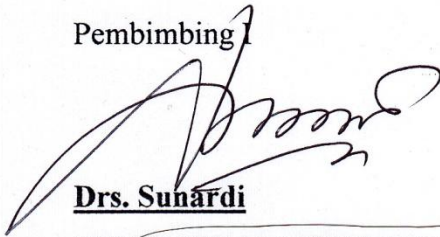 Pembimbing I
Drs. Sunardi